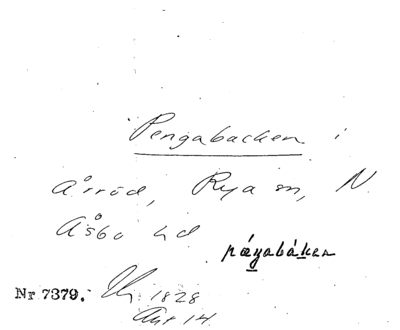 Pengabacken i
Årröd, Rya sn, N.
Åsbo hd
Nr 7379. 1828
Akt 14.